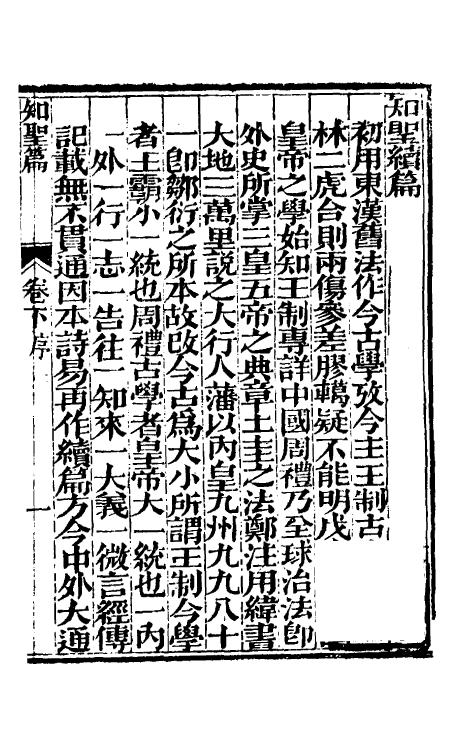 知聖續篇
初用東漢舊法作今古學攷今主王制古
林二虎合則兩傷參差膠轕疑不能明戊
皇帝之學始知王制專詳中國周禮乃全球治法卽
外史所掌三皇五帝之典章土圭之法鄭注用緯書
大地三萬里說之大行人藩以內皇九州九九八十
一卽鄒衍之所本故改今古爲大小所謂王制今學
者王霸小一統也周禮古學者皇帝大一統也一內
一外一行一志一告往一知來一大義一微言經傳
記載無不貫通因本詩易再作續篇方今中外大通
知聖篇
卷下序
一